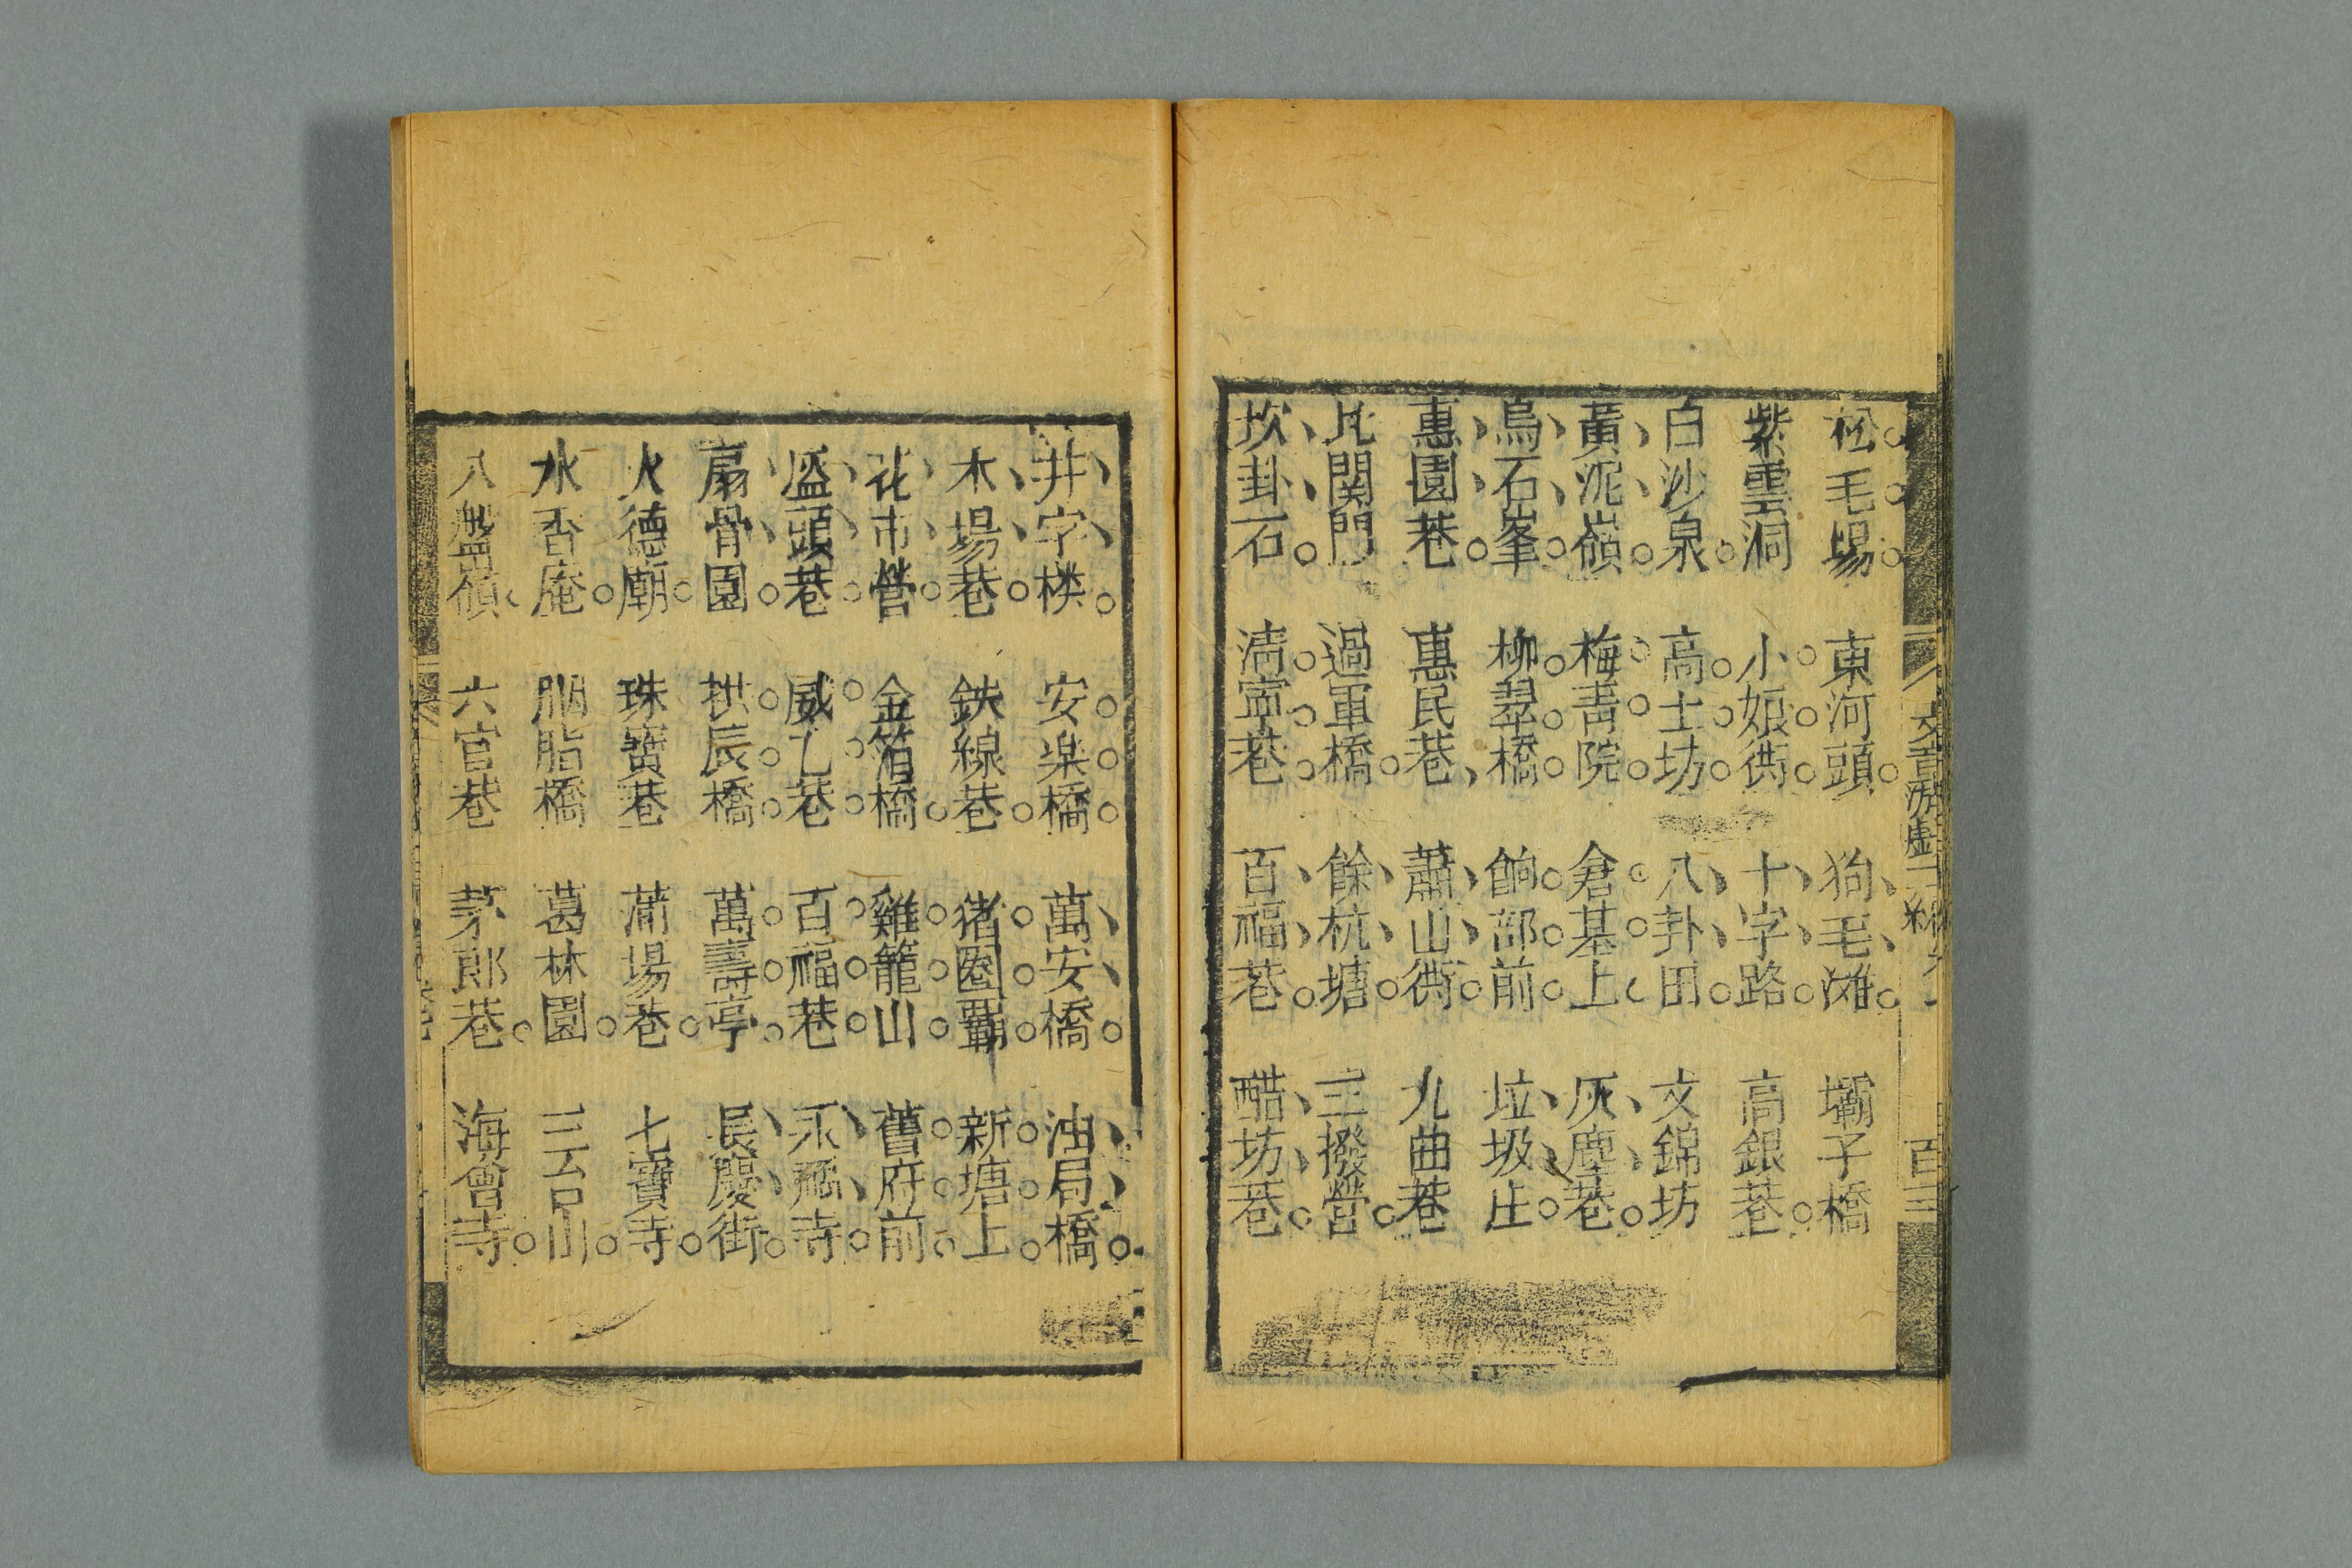 松毛場 東河頭 狗毛滩 壩子橋
紫雲洞 小娘衖 十字路 高銀巷
白沙泉 高士坊 八卦田 文錦坊
黃泥嶺 梅青院 倉基上 灰塵巷
烏石峯 柳翠橋 餉部前 垃圾庄
惠園巷 惠民巷 蕭山衖 九曲巷
北関門 過軍橋 餘杭塘 三撥營
坎卦石 清寧巷 百福巷 醋坊巷
井字楼 安楽橋 萬安橋 油局橋
木場巷 鉄線巷 猪圈覇 新塘上
花市營 金箔橋 雞籠山 曹府前
盔頭巷 威乙巷 百福巷 永福寺
扇骨園 拱辰橋 萬壽亭 長慶街
火德廟 珠寶巷 蒲場巷 七寶寺
水香庵 胭脂橋 葛林園 三台山
八盤嶺 六官巷 茅郎巷 海會寺